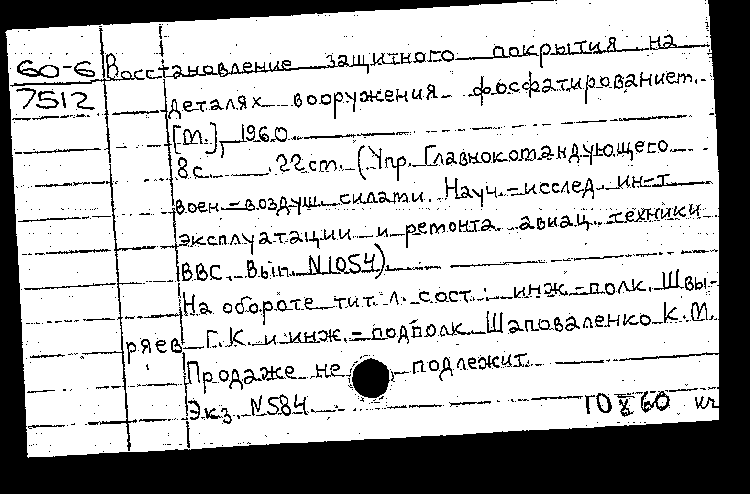 60-6 Восстановление защитного покрытия на
7512 деталях вооружения фосфатированием.
[М.], 1960
8 с. 22 см. (Упр. Главнокомандующего
воен.-воздуш. силами. Науч.-исслед. ин-т
эксплуатации и ремонта авиац. техники
ВВС. Вып. N1054).
На обороте тит. л. сост.: инж.-полк. Швы-
ряев Г.К. и инж.-подполк. Шаповаленко К.М.
Продаже не подлежит.
Экз. N584.
10 X 60